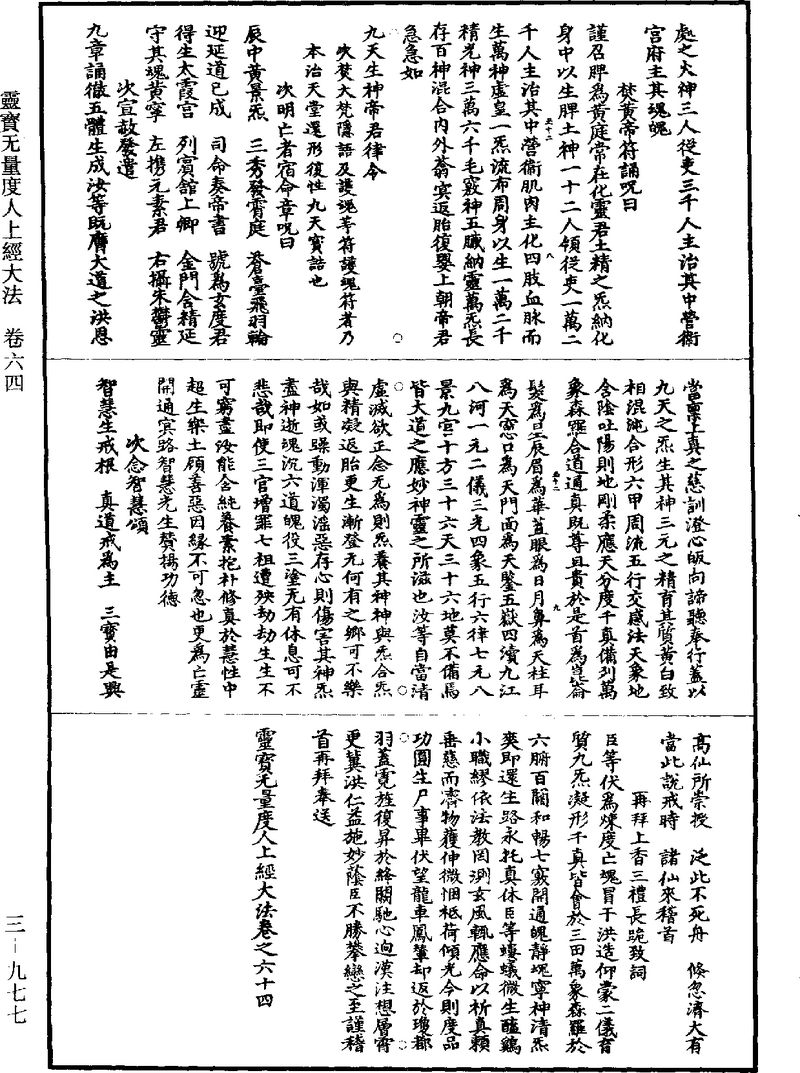 處之大神三人從吏三千人主治其中營衛
宮府主其魂魄
焚黃帝符誦呪曰
謹召脾為黃庭常在化靈君土精之炁納化
身中以生脾土神一十二人領從吏一萬二
千人主治其中營衛肌肉主化四肢血脉而
生萬神虛皇一炁流布周身以生一萬二千
精光神三萬六千毛竅神五臟納靈萬炁長
存百神混合內外蓊寞返胎復嬰上朝帝君
急急如
九天生神帝君律令
次焚大梵隱語及護魂等符護魂符者乃
本治天堂還形復性九天寶誥也
次明亡者宿命章呪曰
辰中黃景炁 三秀發霄庭 蒼臺飛羽輪
迎延道已成 司命奏帝書 號為玄度君
得生太霞宮 列賓館上卿 金門含精延
守其魂黃寧 左携元素君 右攝朱鬱靈
次宣敕發遣
九章誦徹五體生成汝等既膺大道之洪恩
當稟上真之慈訓澄心皈向諦聽奉行蓋以
九天之炁生其神三元之精育其質黃白致
相混沌合形六甲周流五行交感法天象地
含陰吐陽則地剛柔應天分度千真備列萬
象森羅合道通真既尊且貴於是首為崑崙
髮為星辰眉為華蓋眼為日月鼻為天柱耳
為天窓口為天門面為天鑒五嶽四瀆九江
八河一元二儀三光四象五行六律七元八
景九宮十方三十六天三十六地莫不備焉
皆大道之應妙神靈之所滋也汝等自當清
虛滅欲正念无為則炁養其神神與炁合炁
與精凝返胎更生漸登无何有之鄉可不樂
哉如或躁動渾濁滛惡存心則傷害其神炁
盡神逝魂沉六道魄役三塗无有休息可不
悲哉即使三官增罪七祖遭殃劫劫生生不
可窮盡汝能合純養素抱朴修真於慧性中
超生樂土願善惡因緣不可忽也更為亡靈
開通冥路智慧先生贊揚功德
次念智慧頌
智慧生戒根 真道戒為主 三寶由是興
高仙所崇授 泛此不死舟 倏忽濟大有
當此說戒時 諸仙來稽首
再拜上香三禮長跪致詞
臣等伏為煉度亡魂冒干洪造仰蒙二儀育
質九炁凝形千真皆會於三田萬象森羅於
六腑百關和暢七竅開通魄靜魂寧神清炁
爽即還生路永托真休臣等螻蟻微生醯鷄
小職繆依法教罔測玄風輒應命以析真頼
垂慈而濟物獲伸微悃祗荷傾光今則度品
功圓生尸事畢伏望龍車鳳輦却返於瓊都
羽蓋霓旌復昇於絳闕馳心逈漢注想層霄
更冀洪仁益施妙蔭臣不勝攀戀之至謹稽
首再拜奉送
靈寶无量度人上經大法卷之六十四
靈寶无量度人上經大法 卷六四
三-九七七